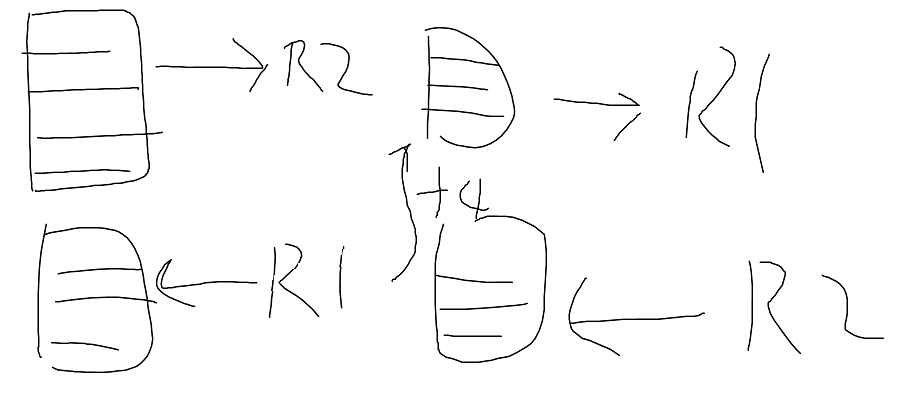 R2 R1
+4
R1 R2